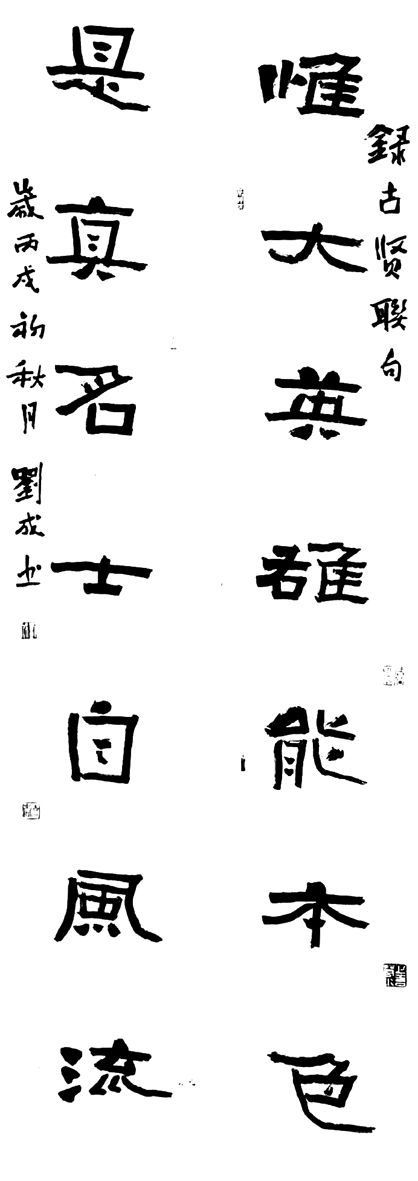 錄古賢聯句
惟大英雄能本色
是真名士自風流
歲丙戌初秋月劉成書